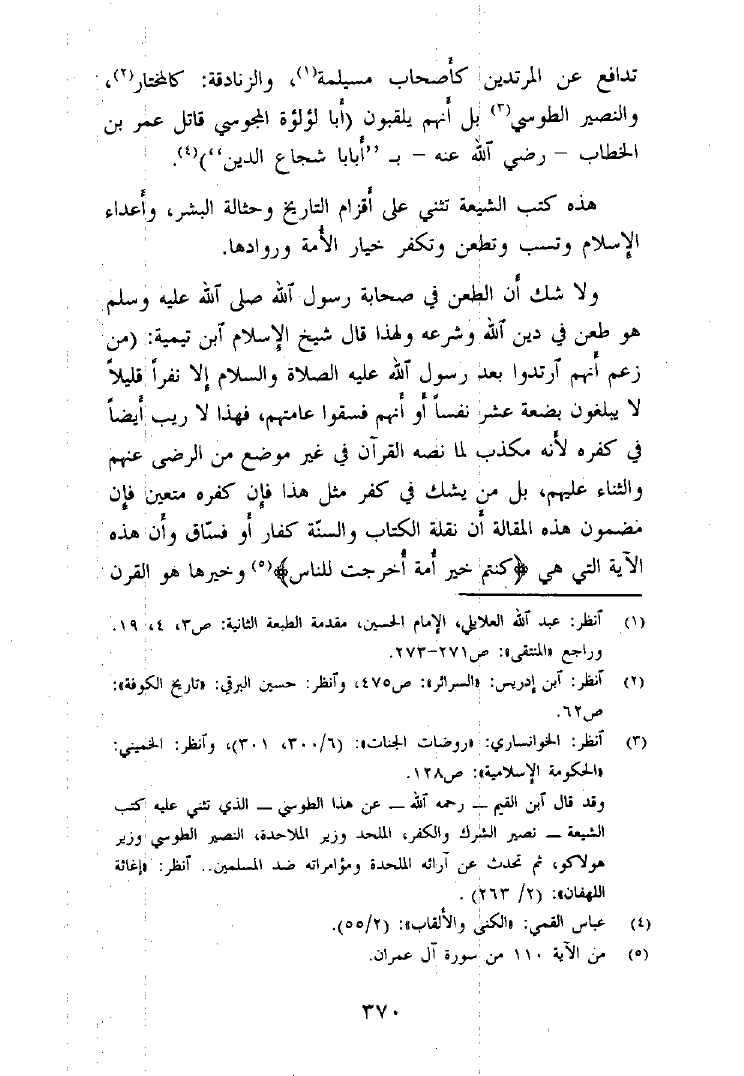 تدافع عن المرتدين كأصحاب مسيلمة(١)، والزنادقة: كالمختار(٢)،
والنصير الطوسي(٣) بل أنهم يلقبون (أبا لؤلؤة المجوسي قاتل عمر بن
الخطاب – رضي ٱلله عنه – بـ ‘‘أبابا شجاع الدين’’)(٤).
هذه كتب الشيعة تثني على أقزام التاريخ وحثالة البشر، وأعداء
الإسلام وتسب وتطعن وتكفر خيار الأمة وروادها.
ولا شك أن الطعن في صحابة رسول ٱلله صلى ٱلله عليه وسلم
هو طعن في دين ٱلله وشرعه ولهذا قال شيخ الإسلام ٱبن تيمية: (من
زعم أنهم ٱرتدوا بعد رسول ٱلله عليه الصلاة والسلام إلا نفراً قليلاً
لا يبلغون بضعة عشر نفساً أو أنهم فسقوا عامتهم، فهذا لا ريب أيضاً
في كفره لأنه مكذب لما نصه القرآن في غير موضع من الرضى عنهم
والثناء عليهم، بل من يشك في كفر مثل هذا فإن كفره متعين فإن
مضمون هذه المقالة أن نقلة الكتاب والسنة كفار أو فسّاق وأن هذه
الآية التي هي ﴿كنتم خير أمة أخرجت للناس﴾(٥) وخيرها هو القرن
(١) ٱنظر: عبد ٱلله العلايلي، الإمام الحسين، مقدمة الطبعة الثانية: ص٣، ٤، ١٩.
وراجع «المنتقى»: ص٢٧١–٢٧٣.
(٢) ٱنظر: ٱبن إدريس: «السرائر»: ص٤٧٥، وٱنظر: حسين البرقي: «تاريخ الكوفة»:
ص٦٢.
(٣) ٱنظر: الخوانساري: «روضات الجنات»: (٣٠٠/٦، ٣٠١)، وٱنظر: الخميني:
«الحكومة الإسلامية»: ص١٢٨.
وقد قال ٱبن القيم – رحمه ٱلله – عن هذا الطوسي – الذي تثني عليه كتب
الشيعة – نصير الشرك والكفر، الملحد وزير الملاحدة، النصير الطوسي وزير
هولاكو، ثم تحدث عن آرائه الملحدة ومؤامراته ضد المسلمين.. ٱنظر: «إغاثة
اللهفان»: (٢/ ٢٦٣) .
(٤) عباس القمي: «الكنى والألقاب»: (٥٥/٢).
(٥) من الآية ١١٠ من سورة آل عمران.
٣٧٠